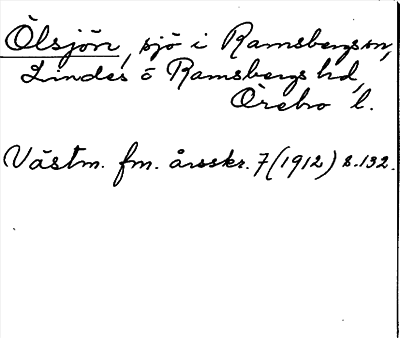 Ölsjön, sjö i Ramsbergs sn,
Lindes o Ramsbergs hd,
Örebro l.
Västm. fm. årsskr. 7 (1912) s. 132.